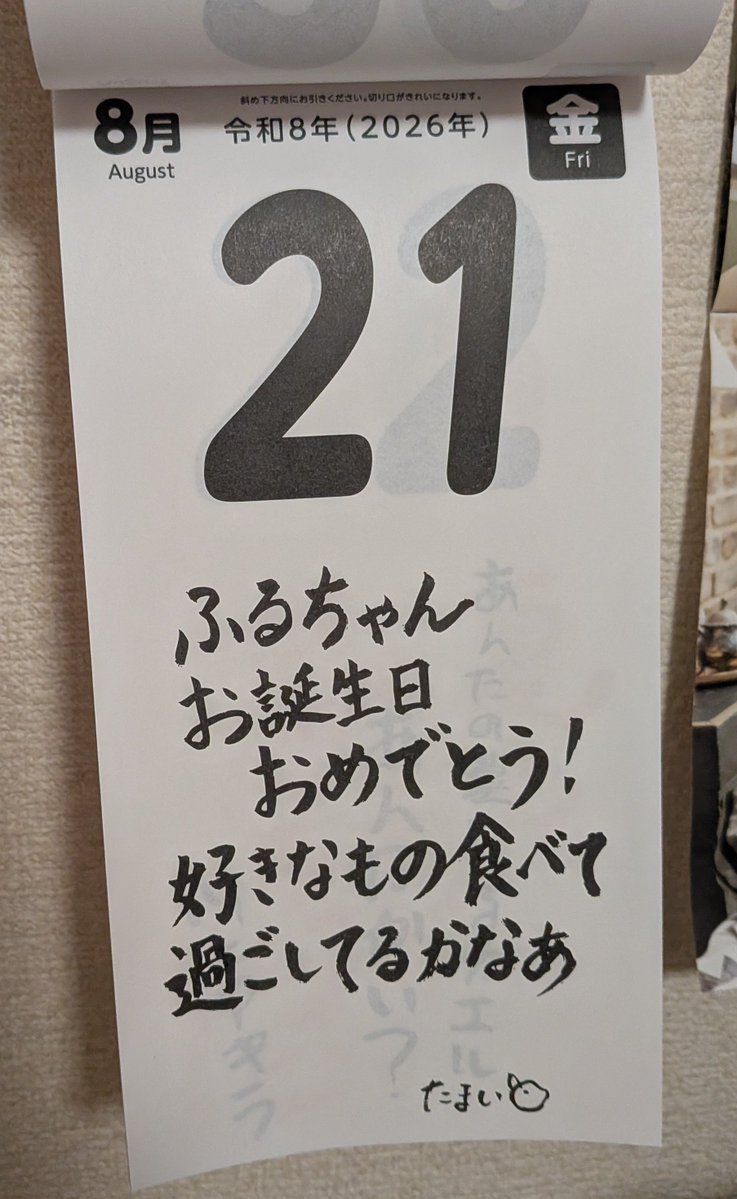 斜め下方向にお引きください。切り口がきれいになります。
8月
August
令和8年(2026年)
金
Fri
21
ふるちゃん
お誕生日
おめでとう!
好きなもの食べて
過ごしてるかなあ
たまい